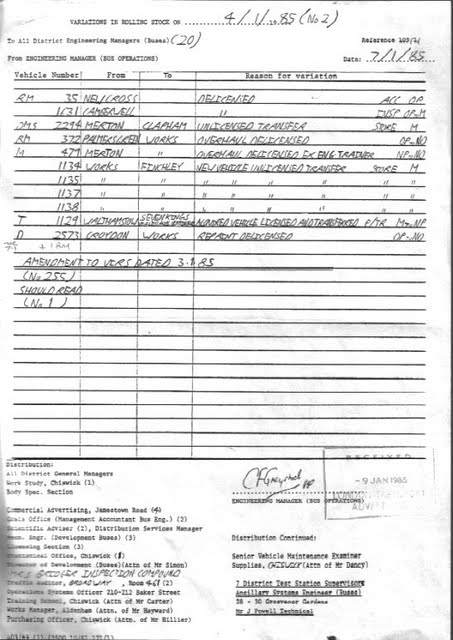 VARIATIONS IN ROLLING STOCK ON 4/1/1985 (No 2)
To All District Engineering Managers (Buses) (20)
Reference 105/
From ENGINEERING MANAGER (BUS OPERATIONS)
Date: 7/1/85
Vehicle Number From To Reason for variation
RM 35 NEW CROSS DELICENSED ACC OP
1131 CAMBERWELL " INSP OP-M
DMS 2294 MERTON CLAPHAM UNLICENSED TRANSFER STORE M
RM 372 PALMERS GREEN WORKS OVERHAUL DELICENSED OP-NO
M 479 MERTON " OVERHAUL DELICENSED EX ENG TRAINER NP-NO
1134 WORKS FINCHLEY NEW VEHICLE UNLICENSED TRANSFER STORE M
1135 " " " " " " " "
1137 " " " " " " " "
1138 " " " " " " " "
T 1129 WALTHAMSTOW SEVEN KINGS VEHICLE LICENSED AND TRANSFERRED M-NP
D 2573 CROYDON WORKS REPAINT DELICENSED OP-NO
AMENDMENT TO VERS DATED 3.1.85
(No 255)
SHOULD READ
(No 1)
Distribution:
All District General Managers
Work Study, Chiswick (1)
Body Spec. Section
ENGINEERING MANAGER (BUS OPERATIONS)
RECEIVED
- 9 JAN 1985
ADVERT
Commercial Advertising, Jamestown Road (4)
Office (Management Accountant Bus Eng.) (2)
Scientific Adviser (2), Distribution Services Manager
Engr. (Development Buses) (3)
Licensing Section (3)
Office, Chiswick
Director of Development (Buses)(Attn of Mr Simon)
MRS BRIDGER INSPECTION COMPOUND
BROADWAY, ROOM
Operations Systems Officer 210-212 Baker Street
Training School, Chiswick (Attn of Mr Carter)
Works Manager, Aldenham (Attn of Mr Hayward)
Purchasing Officer, Chiswick (Attn. of Mr Hillier)
Distribution Continued:
Senior Vehicle Maintenance Examiner
Supplies, CHISWICK (Attn of Mr Dancy)
7 District Test Station Supervisors
Ancillary Systems Engineer (Buses)
28 - 30 Grosvenor Gardens
Mr J Powell Technical